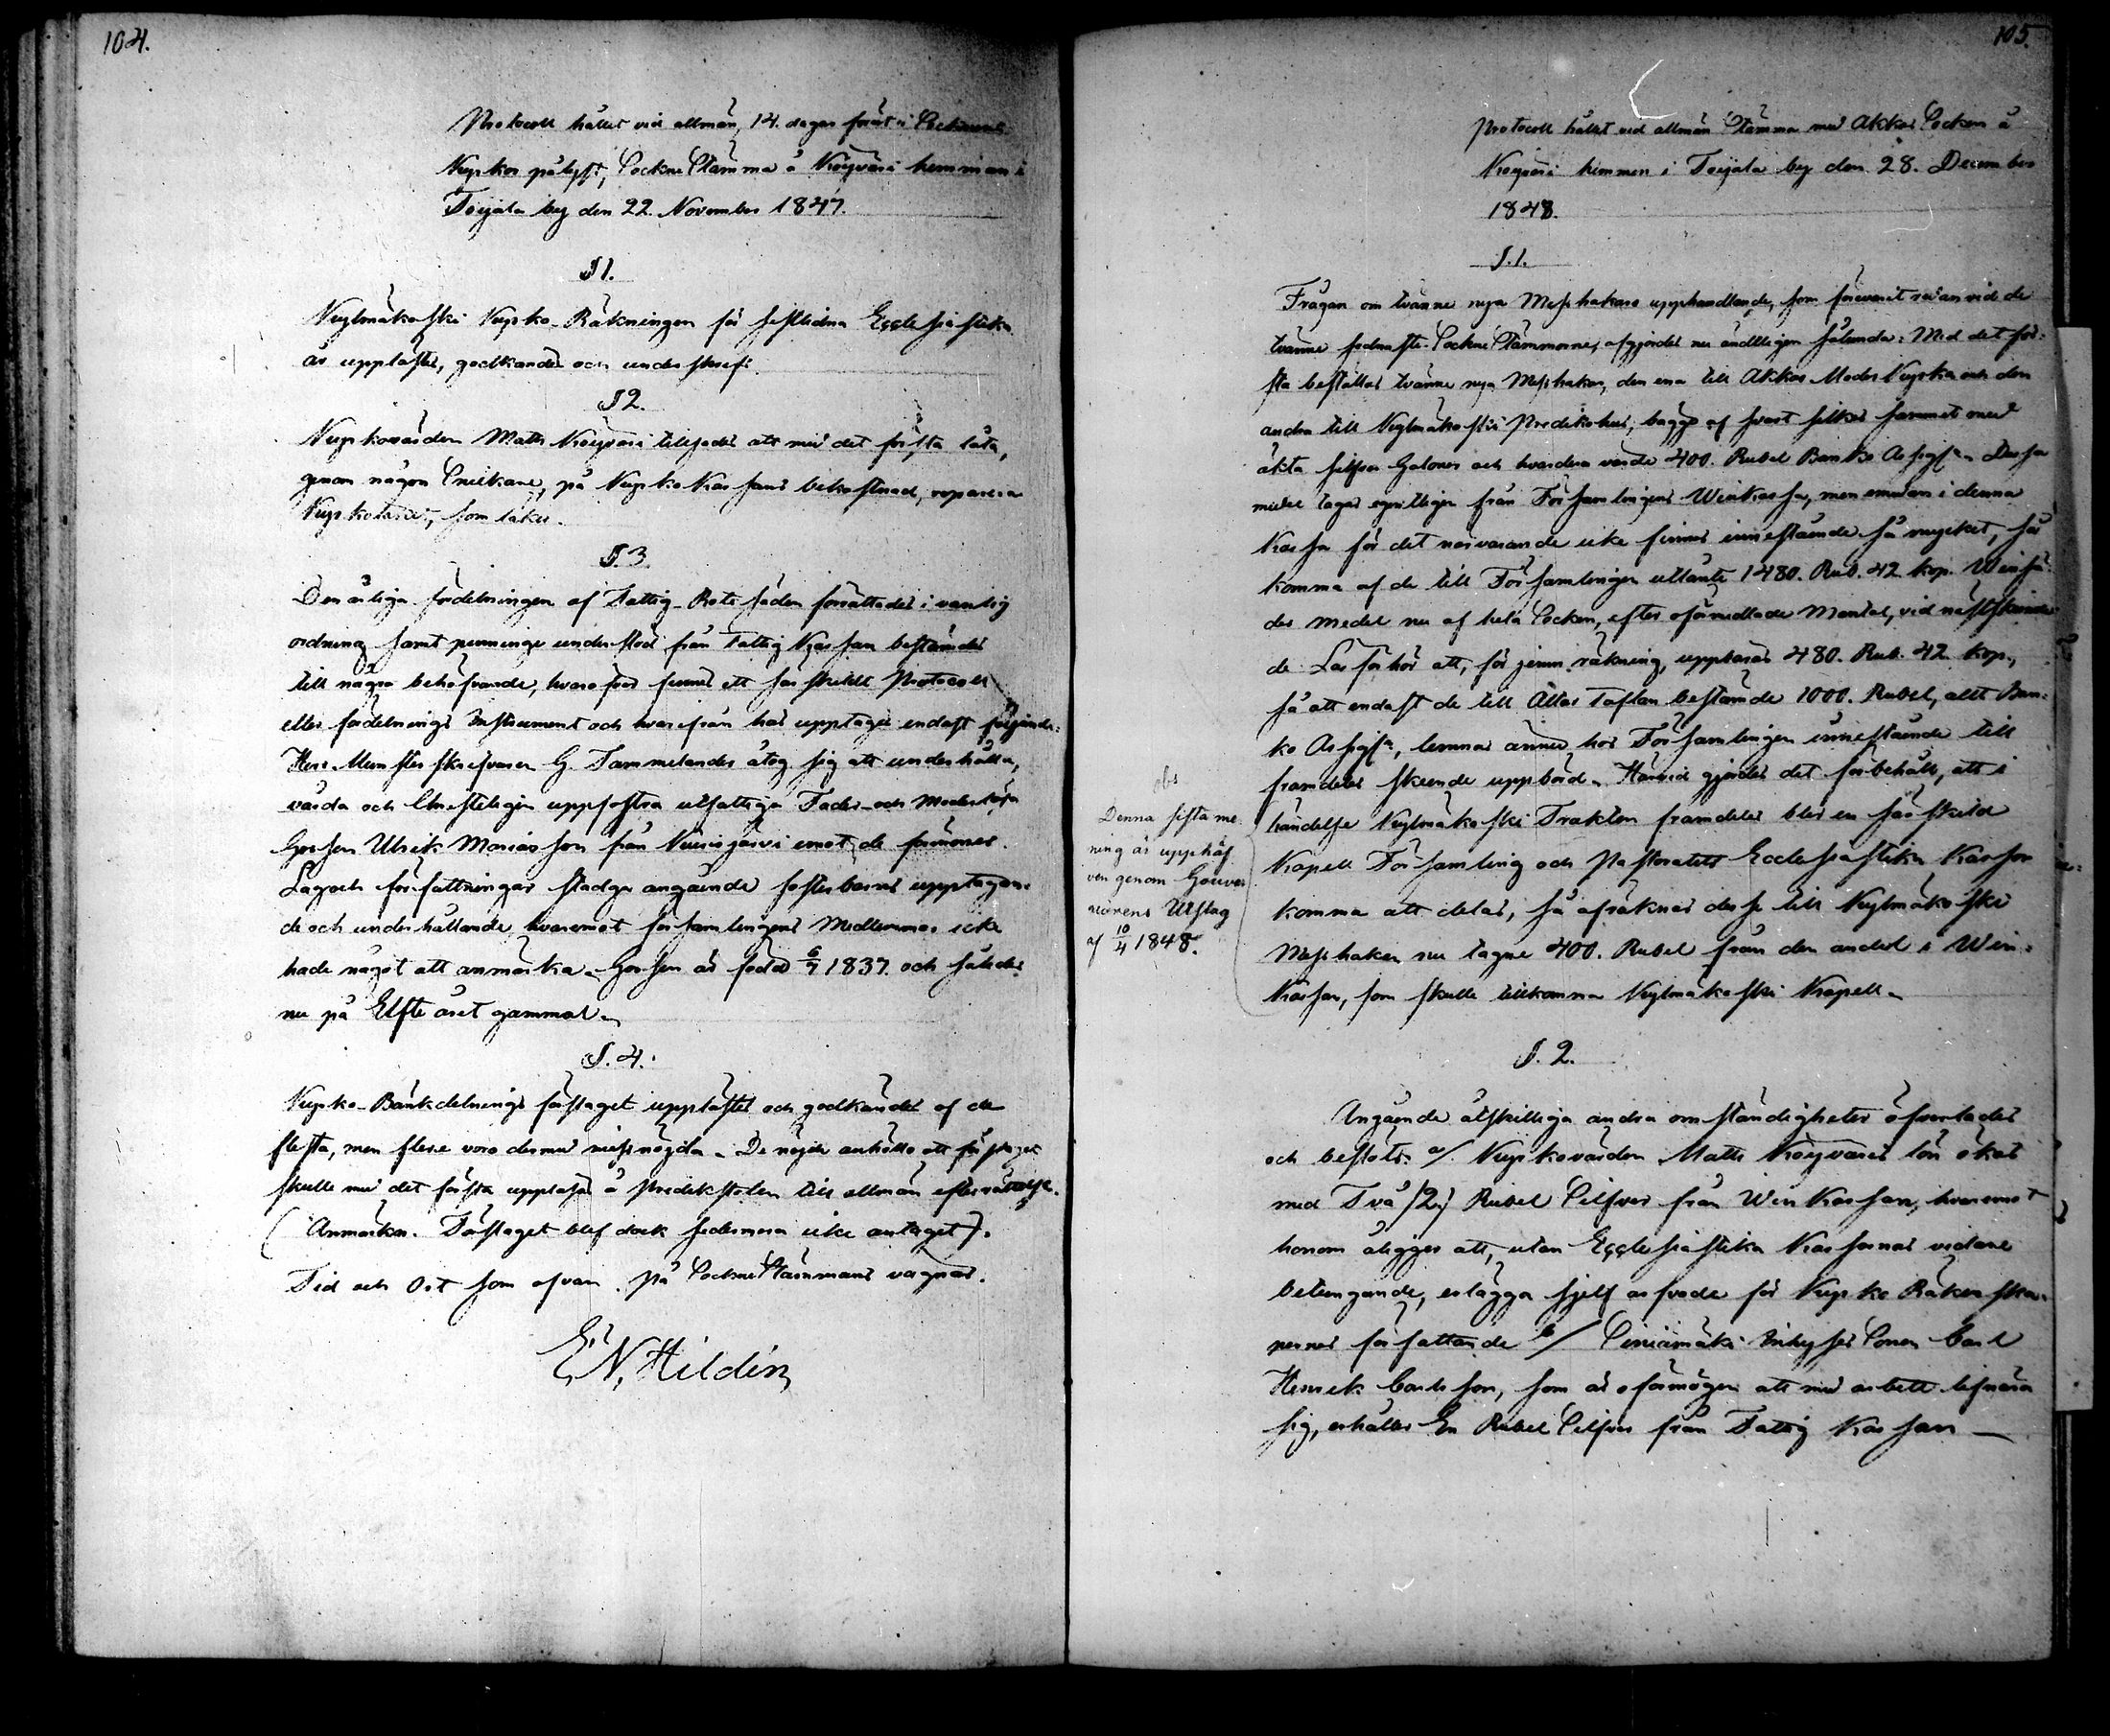 104.
Protocoll hållet vid allmän, 14. dagar förut i Socknens
Kyrkor pålyst, Sockne Stämma å Köyväri hemman i
Toijala by den 22. November 1847.
§ 1.
Kylmäkoski Kyrko-Räkningen för sistledna Ecclesiastik
år upplästes, godkändes och underskrefs.
§ 2.
Kyrkovärden Matts Köyväri tillsades att med det första låta,
genom någon Snickare, på Kyrko Kassans bekostnad, reparera
Kyrkotaket, som läker.
§. 3.
Den årliga fördelningen af Fattig-Rote hjelen författades i vanlig
ordning samt penninge understöd från Fattig Kassan bestämdes
till några behöfvande, hvaröfver finnes ett särskildt Protocoll
eller fördelnings Instrument och hvarifrån här upptages endast följande:
Herr Mönsterskrifvaren G. Tammelander åtog sig att underhålla,
vårda och Christeligen uppfostra utfattiga Fader- och Moderlösa
Gossen Ulrik Mariasson från Nuutajärvi emot de förmoner
Lag och författningar stadga angående fosterbarns upptagan-
de och underhållande, hvaremot församlingens Medlemmar icke
hade något att anmärka. Gossen är född 6/7 1837. och således
nu på Elfte året gammal.
§. 4.
Kyrko-Bänkdelnings förslaget upplästes och godkändes af de
flesta, men flere voro dermed missnögda. De nöjde anhöllo att förslaget
skulle med det första uppläsas å Predikstolen till allmän efterrättelse.
(Anmärkn. Förslaget blef dock sedermera icke antaget).
Tid och Ort som ofvan. På Sockne Stämmans vägnar.
E. N. Hildén
105.
Protocoll hållet vid allmän Stämma med Akkas Socken å
Köyväri hemman i Toijala by den 28. December
1848.
§. 1.
Frågan om tvänne nya Messhakars upphandlande, som förevarit redan vid de
tvänne sednaste Sockne Stämmorne, afgjordes nu ändtligen sålunda: Med det för-
sta beställas tvänne nya Messhakar, den ena till Akkas Moder Kyrka och den
andra till Kylmäkoski Predikohus, bägge af svart silkes sammet med
äkta silfver Galoner och hvardera värde 400. Rubel Banko Assignr. Dessa
medel tagas egentligen från Församlingens Winkassa, men emedan i denna
Kassa för det närvarande icke finnes innestående så mycket, så
komma af de till Församlingen utlånte 1480. Rub. 42 kop. Winsä-
des Medel nu af hela Socken, efter oförmedlade Mantal, vid nästskeen-
de Läsförhör att, för jemn räkning, uppbäras 480. Rub. 42 kop.,
så att endast de till Altar Taflan bestämde 1000. Rubel, allt Ban-
ko Assignr, lemnas ännu hos Församlingen innestående till
framdeles skeende uppbörd. Härvid gjordes det förbehåll, att i
händelse Kylmäkoski Trakten framdeles blir en särskild
Kapell Församling och Pastoratets Ecclesiastika Kassor
komma att delas, så afräknas desse till Kylmäkoski
Messhaken nu tagne 400. Rubel från den andel i Win-
kassan, som skulle tillkomma Kylmäkoski Kapell.
obs
Denna sista me-
ning är upphäf-
ven genom Gouver-
neurens Utslag
af 10/4 1848.
§. 2.
Angående åtskilliga andra omständigheter öfverlades
och beslöts: a/. Kyrkovärden Matts Köyväris lön ökas
med Två /2./ Rubel Silfver från Win Kassan, hvaremot
honom åligger att, utan Ecclesiastika Kassornas vidare
betungande, erlägga sjelf arfvode för Kyrko Räkenska-
pernes författande b/ Siniämäki Inhyses Sonen Carl
Henrik Carlsson, som är oförmögen att med arbete lifnära
sig, erhåller En Rubel Silfver från Fattig Kassan —